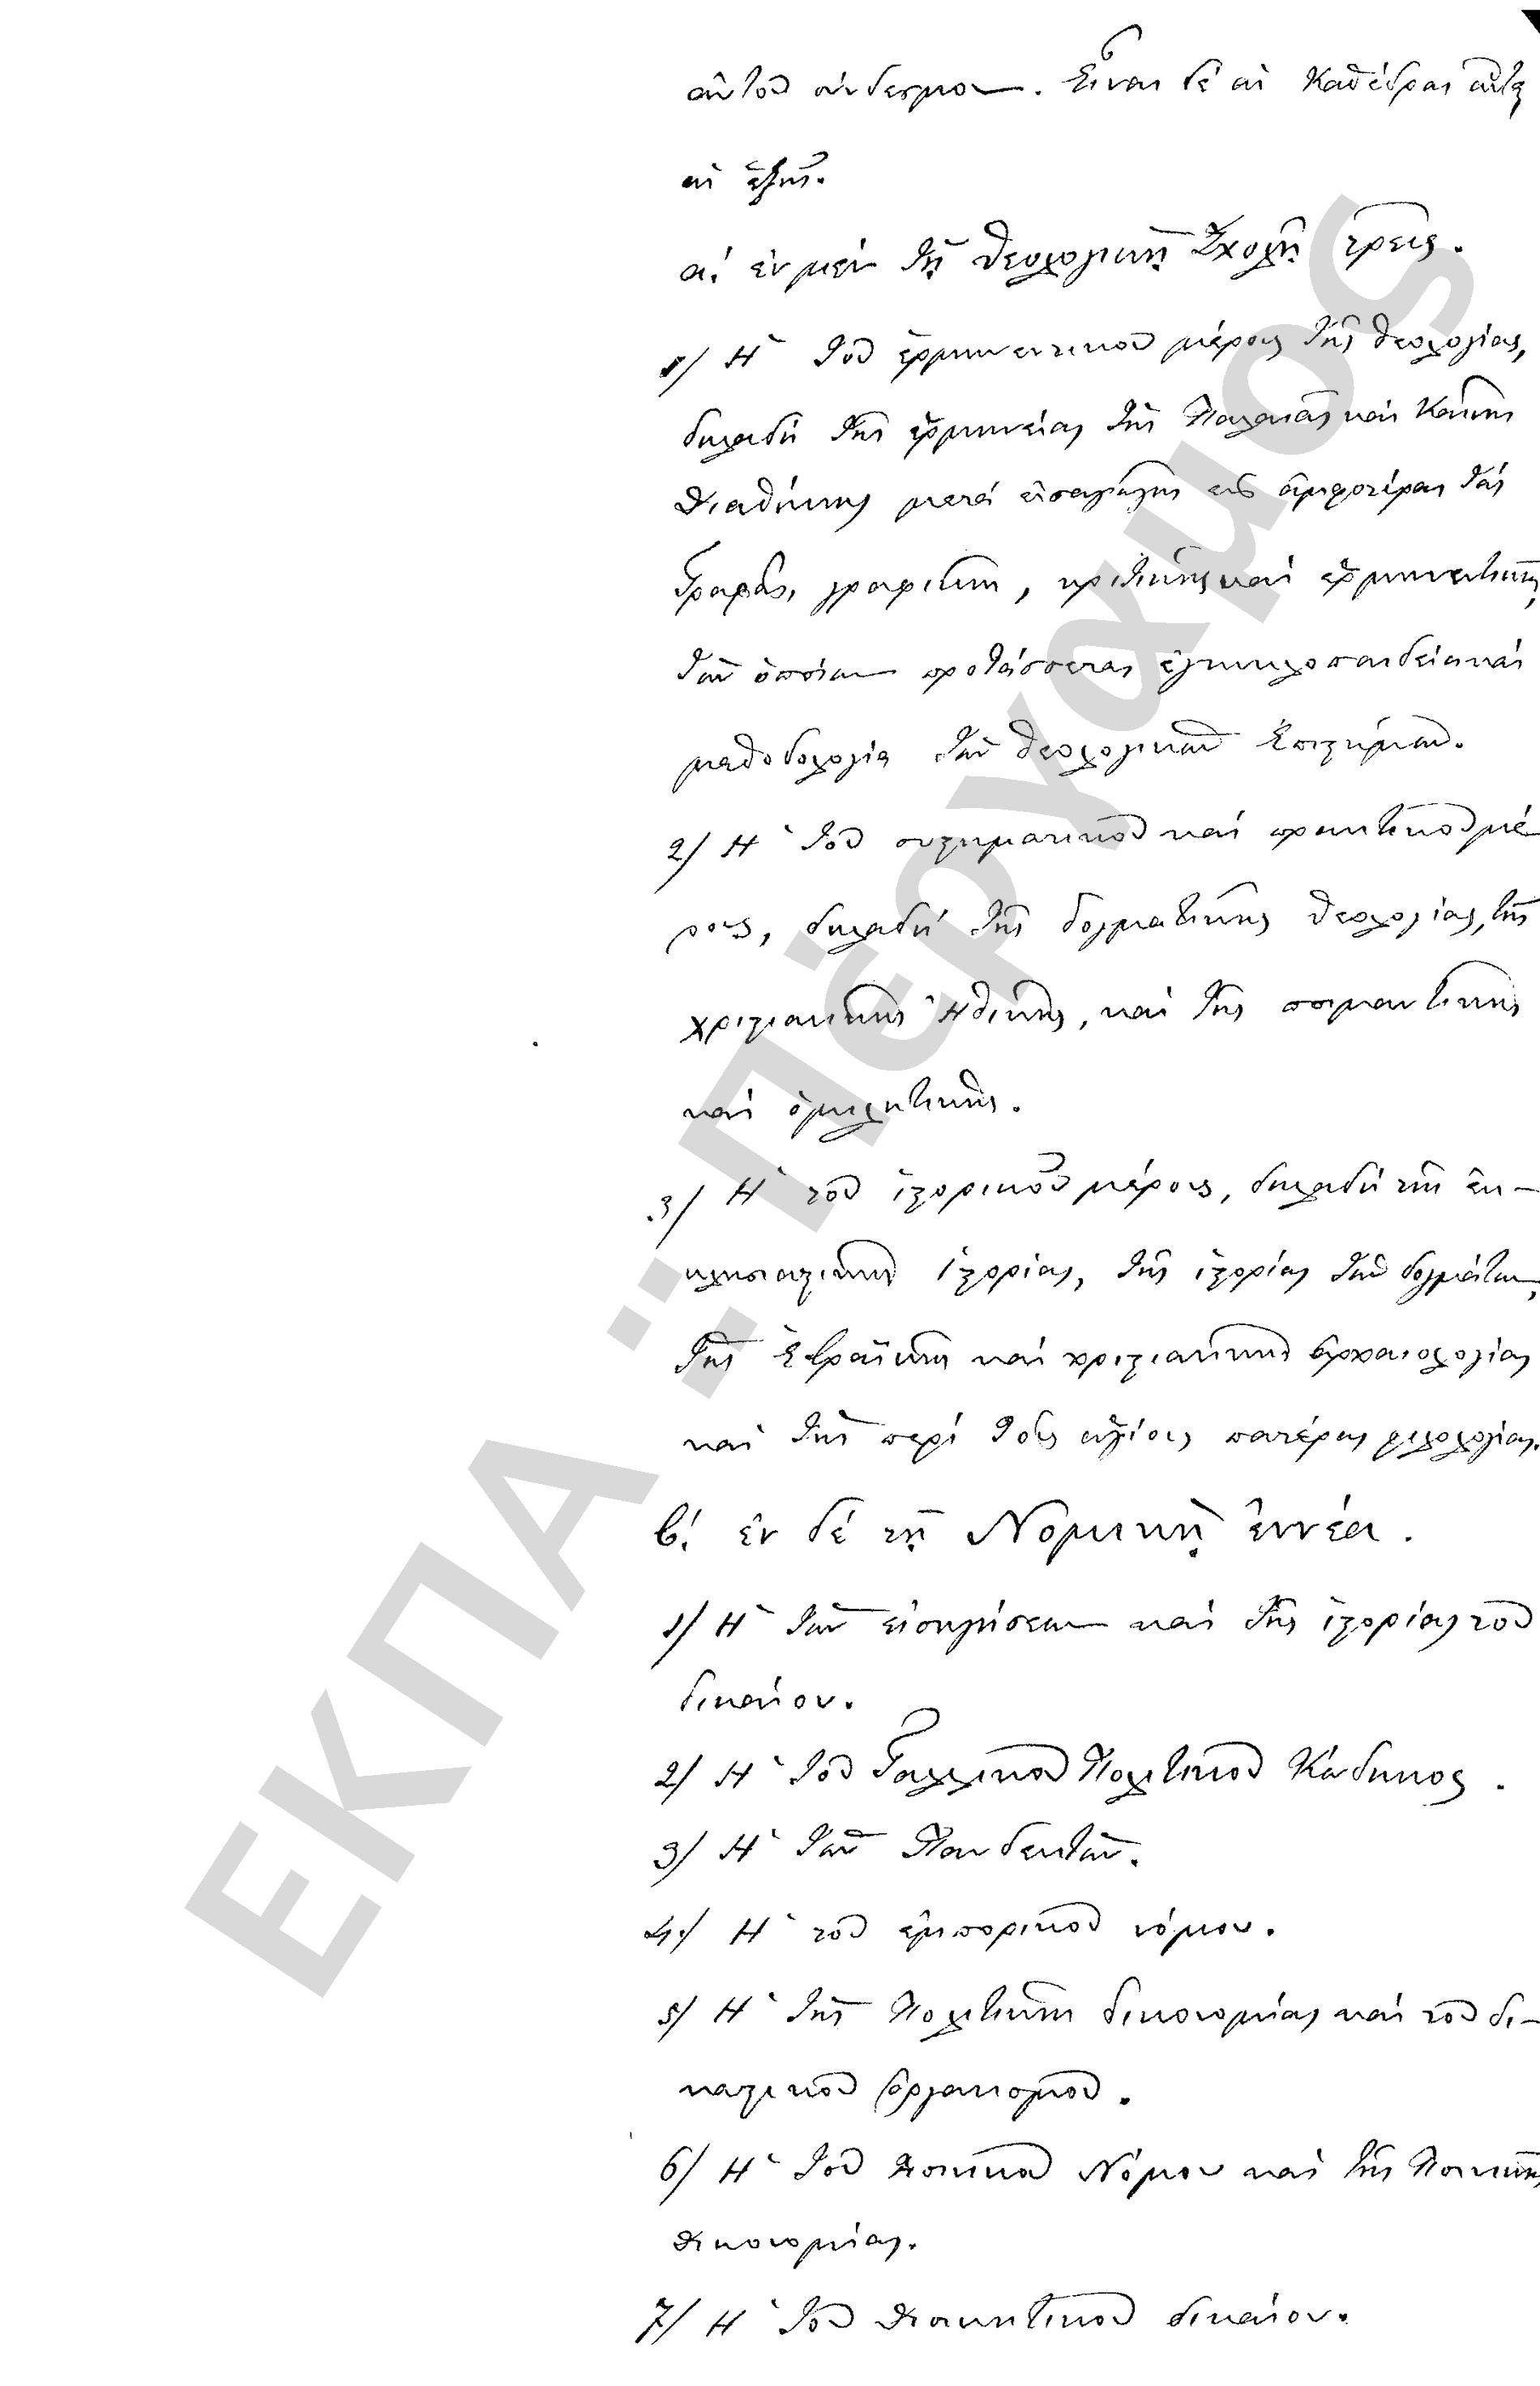 αὐτοῦ σύνδεσμον. Εἶναι δὲ αἱ Καθέδραι αὗται
αἱ ἑξῆς.
α.' ἐν μὲν τῇ Θεολογικῇ Σχολῇ τρεις.
1/ Ἡ τοῦ ἑρμηνευτικοῦ μέρους τῆς Θεολογίας,
δηλαδὴ τῆς ἑρμηνείας τῆς Παλαιᾶς καὶ Καινῆς
Διαθήκης μετὰ εἰσαγωγῆς εἰς ἀμφοτέρας τὰς
Γραφὰς, γραφικῆς, κριτικῆς καὶ ἑρμηνευτικῆς,
τῶν ὁποίων προτάσσεται ἐγκυκλοπαιδεία καὶ
μεθοδολογία τῶν Θεολογικῶν Ἐπιστημῶν.
2/ Ἡ τοῦ συστηματικοῦ καὶ πρακτικοῦ μέ
ρους, δηλαδὴ τῆς δογματικῆς Θεολογίας, τῆς
χριστιανικῆς Ἠθικῆς, καὶ τῆς ποιμαντικῆς
καὶ ὁμιλητικῆς.
3/ Ἡ τοῦ ἱστορικοῦ μέρους, δηλαδὴ τῆς ἐκ-
κλησιαστικῆς Ἱστορίας, τῆς ἱστορίας τῶν δογμάτων,
τῆς Ἑβραϊκῆς καὶ χριστιανικῆς ἀρχαιολογίας
καὶ τῆς περὶ τοὺς ἁγίους πατέρας φιλολογίας.
β.' ἐν δὲ τῇ Νομικῇ ἐννέα.
1/ Ἡ τῶν εἰσηγήσεων καὶ τῆς ἱστορίας τοῦ
δικαίου.
2/ Ἡ τοῦ Γαλλικοῦ Πολιτικοῦ Κώδηκος.
3/ Ἡ τῶν Πανδεκτῶν.
4/ Ἡ τοῦ ἐμπορικοῦ νόμου.
5/ Ἡ τῆς Πολιτικῆς δικονομίας καὶ τοῦ δι-
καστικοῦ ὀργανισμοῦ.
6/ Ἡ τοῦ Ποινικοῦ Νόμου καὶ τῆς Ποινικῆς
Δικονομίας.
7/ Ἡ τοῦ Διοικητικοῦ δικαίου.
ΕΚΠΑ :: Πέργαμος